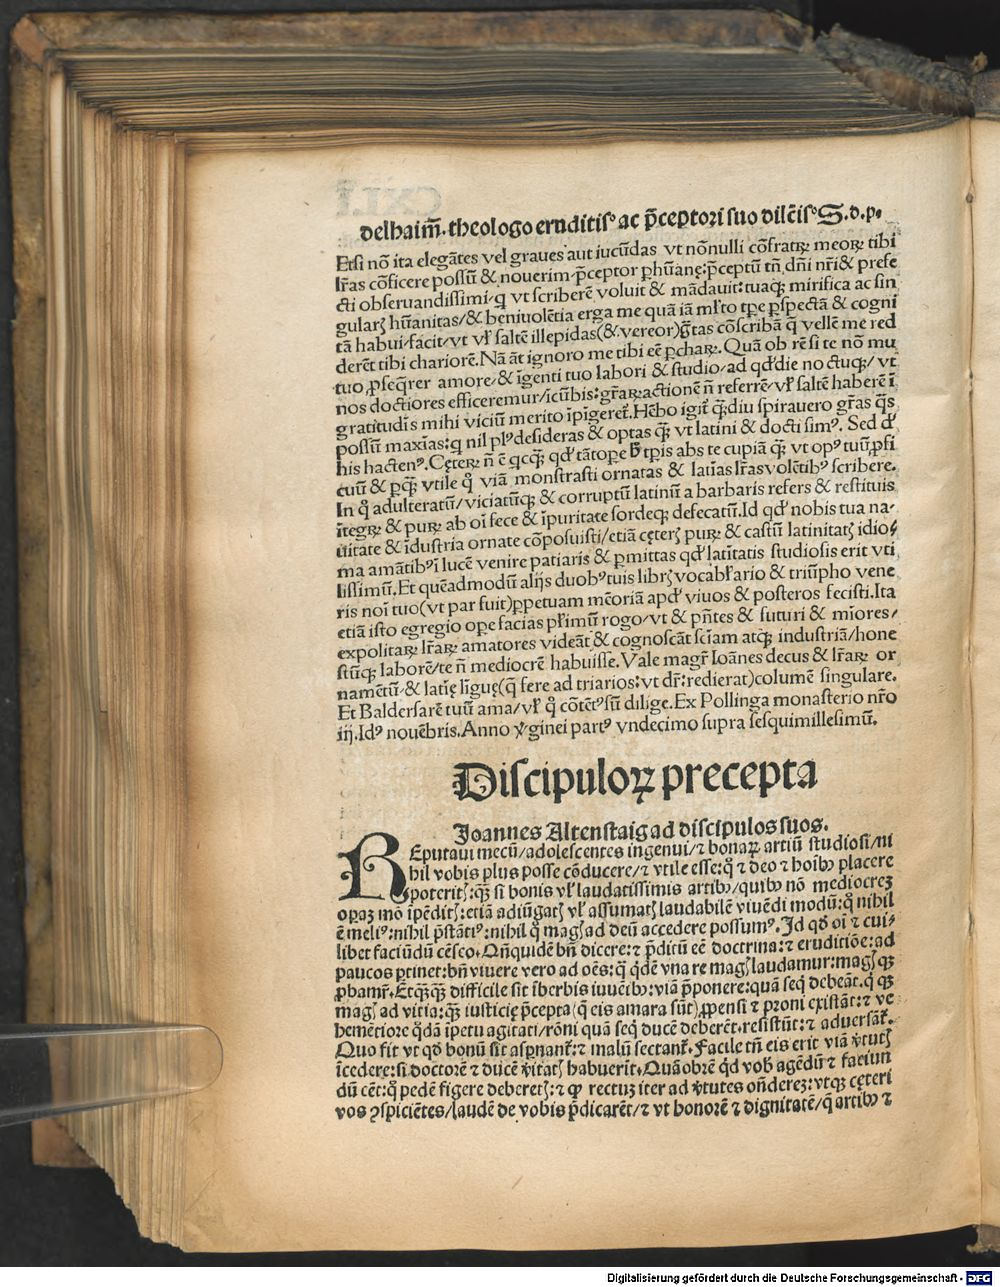 delhaim̄. theologo eruditisꝰ ac p̄ceptori suo dilēisꝰ S.d.p.
Etsi nō ita elegātes vel graues aut iucūdas vt nōnulli cōfratrꝝ meorꝝ tibi
lr̄as cōficere possū & nouerim p̄ceptor ꝑhūanę: p̄ceptū tn̄ dn̄i nr̄i & prefe
cti obseruandissimi/ꝙ vt scriberē voluit & mādauit: tuaqꝫ mirifica ac sin
gularꝫ hūanitas/& beniuolētia erga me quā iā ml̄to tꝑe ꝑspectā & cogni
tā habui/facit/vt vl̄ saltē illepidas(& vereor)ḡtas cōscribā q̄ vellē me red
derēt tibi chariorē. Nā āt ignoro me tibi eē ꝑcharꝝ. Quā ob rē si te nō mu
tuo ꝓseq̄rer amore/& īgenti tuo labori & studio/ad qd̄ die noctuqꝫ/vt
nos doctiores efficeremur/icūbis: gr̄arꝝ actionē n̄ referrē/vl̄ saltē haberē ī
gratitudīs mihi viciū merito īpīgeret̄. Hēbo igit̄ qꝫdiu spirauero gr̄as q̄s
possū maxīas: q nil plꝰ desideras & optas qꝫ vt latini & docti simꝰ. Sed d̄
his hactenꝰ. Cęterꝝ n̄ ē qcqꝫ qd̄ tātopeꝛe tꝑis abs te cupiā qꝫ vt opꝰ tuū ꝓfi
cuū & ꝑqꝫ vtile q̊ viā monstrasti ornatas & latīas lr̄as volētibꝰ scribere.
In q̊ adulteratū/viciatūqꝫ & corruptū latinū a barbaris refers & restituis
ītegrꝝ & purꝝ ab oī fece & īpuritate sordeqꝫ defecatū. Id qd̄ nobis tua na-
uitate & īdustria ornate cōposuisti/etiā cęterꝫ purꝝ & castū latinitatꝫ idio-
ma amātibꝰ ī lucē venire patiaris & ꝑmittas qd̄ latītatis studiosis erit vti
lissimū. Et quēadmodū alijs duobꝰ tuis librꝫ vocabl̄ario & triūpho vene
ris noī tuo(vt par fuit)ꝑpetuam mēoriā apd̄ viuos & posteros fecisti. Ita
etiā isto egregio oꝑe facias pl̄imū rogo/vt & pn̄tes & futuri & mīores/
expolitarꝝ lr̄arꝝ amatores videāt & cognoscāt sciam atqꝫ industriā/hone
stūqꝫ laborē/te n̄ mediocrē habuisse. Vale magr̄ Ioānes decus & lr̄arꝝ or
namētū/& latię līguę(q̄ fere ad triarios: vt dr̄: redierat)columē singulare.
Et Baldersarē tuū ama/vl̄ q̊ cōtētꝰ sū dilige. Ex Pollinga monasterio nr̄o
iij. Idꝰ nouēbris. Anno v̄ginei partꝰ vndecimo supra sesquimillesimū.
Discipulorꝝ precepta
Joannes Altenstaig ad discipulos suos.
REputaui mecū/adolescentes ingenui/⁊ bonarꝝ artiū studiosi/ni
hil vobis plus posse cōducere/⁊ vtile esse: q̊ ⁊ deo ⁊ hoībꝰ placere
poteritꝫ: qꝫ si bonis vl̄ laudatissimis artibꝰ/quibꝰ nō mediocrez
operaz mō īpēditꝫ: etiā adiūgatꝫ vl̄ assumatꝫ laudabilē viuēdi modū: q̊ nihil
ē meliꝰ: nihil p̄stātiꝰ: nihil q̊ magꝫ ad deū accedere possumꝰ. Id qd̄ oī ⁊ cui-
libet faciūdū cēseo. Qn̄quidē bn̄ dicere: ⁊ p̄ditū eē doctrina: ⁊ eruditiōe: ad
paucos ꝑtinet: bn̄ viuere vero ad oēs: q̄ qdē vna re magꝫ laudamur: magꝫ qꝫ
ꝓbamr̄. Etqꝫqꝫ difficile sit īberbis iuuēibꝰ: viā p̄ponere: quā seq debeāt. q qꝫ
magꝫ ad vitia: qꝫ iusticię p̄cepta(q̄ eis amara sūt)ꝓpensi ⁊ proni existāt: ⁊ ve
hemētiore qdā īpetu agitati/rōni quā seq ducē deberēt. resistūt: ⁊ aduersāt̄.
Quo fit vt qd̄ bonū sit aspnant̄: ⁊ malū sectant̄. Facile tn̄ eis erit viā v̄tutꝫ
īcedere: si doctorē ⁊ ducē v̄itatꝫ habuerit. Quāobrē qd̄ vob̄ agēdū ⁊ faciun
dū cēt: q̊ pedē figere deberetꝫ: ⁊ ꝙ rectuz iter ad v̄tutes on̄derez: vtqꝫ cęteri
vos ꝯspiciētes/laudē de vobis p̄dicarēt/⁊ vt bonorē ⁊ dignitatē/q̄ artibꝰ ⁊
Digitalisierung gefördert durch die Deutsche Forschungsgemeinschaft - DFG